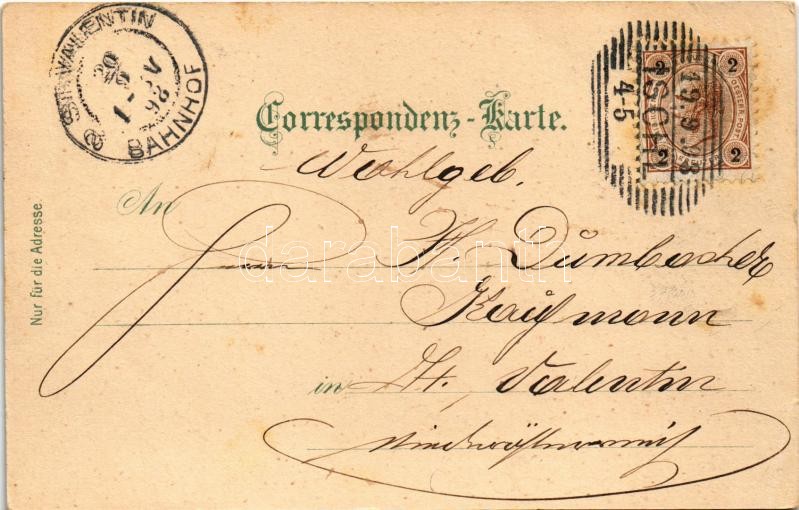 ST. VALENTIN
BAHNHOF
20
9
98
19.9.98
ISCHL
4-5
2
2
2
2
Correspondenz-Karte.
Wohlgeb.
An
Herrn F. Dümbacher
Kaufmann
in St. Valentin
Niederösterreich
Nur für die Adresse.
darabanth